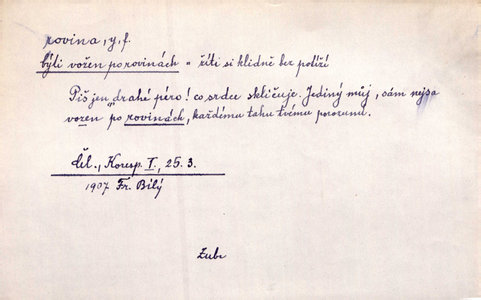 rovina, y, f.
býti vožen po rovinách = žíti si klidně bez potíží
Piš jen „drahé péro! co srdce skličuje. Jediný můj, sám nejsa
vozen po rovinách, každému tahu tvému porozumí.
Čel., Koresp. I, 25. 3.
1907 Fr. Bílý
Zub